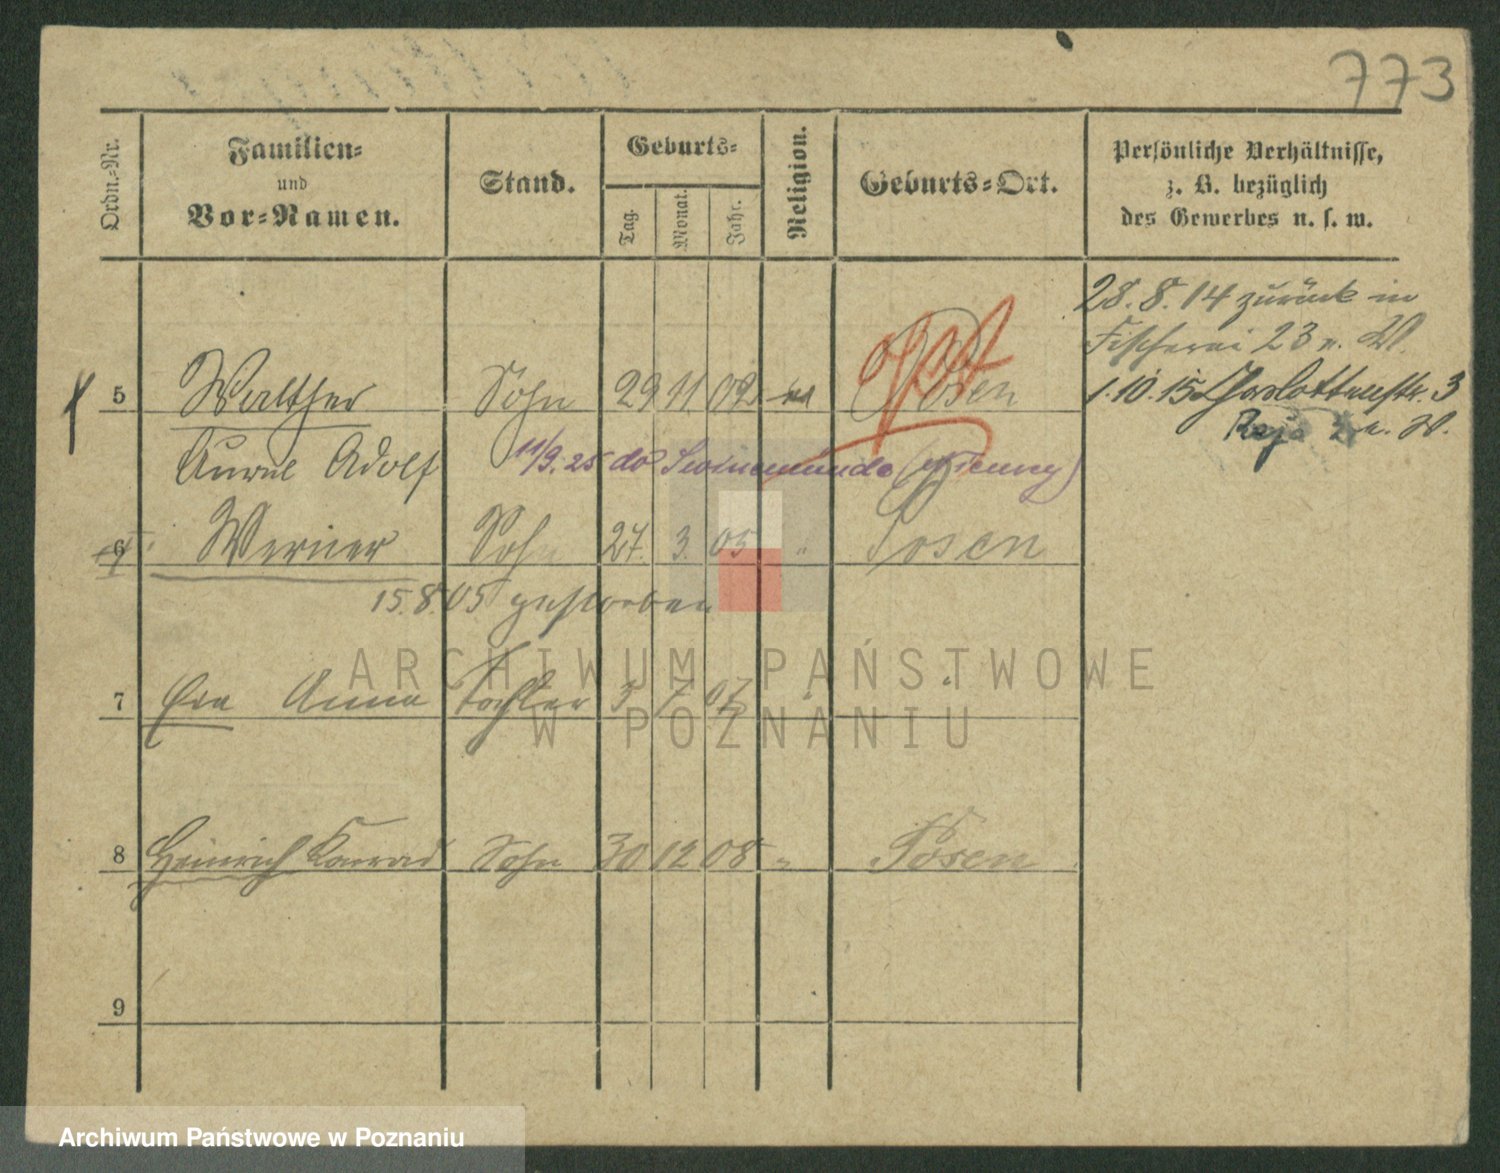 773
Ordn.-Nr.
Familien-
und
Vor-Namen.
Stand.
Geburts-
Tag.
Monat.
Jahr.
Religion.
Geburts-Ort.
Persönliche Verhältnisse,
z. B. bezüglich
des Gewerbes u. s. w.
28.8.14 zurück in
Fischerei 23 u. W.
5 Walther Sohn 29 11 02 Posen
1.10.15 Charlottenstr. 3
u. W.
Adolf
11/9.25 do Swinemünde (Niemcy)
6 Werner Sohn 27. 3. 05 " Posen
15.8.05 gestorben
7 Eva Anna Tochter 3 7 07 "
8 Heinrich Konrad Sohn 30 12 08 " Posen
9
ARCHIWUM PAŃSTWOWE
W POZNANIU
Archiwum Państwowe w Poznaniu